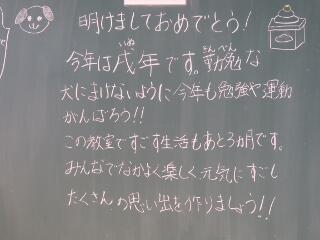 明けましておめでとう!
いぬ きんべん
今年は戌年です。勤勉な
犬にまけないように今年も勉強や運動
がんばろう!!
この教室ですごす生活もあと3カ月です。
みんなでなかよく楽しく元気にすごし
たくさんの思い出を作りましょう!!